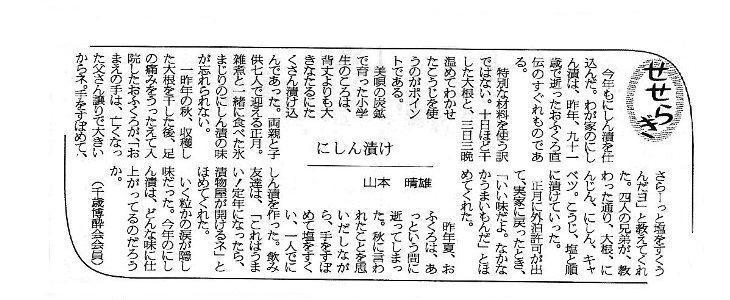 せせらぎ
にしん漬け
山本　晴雄
今年もにしん漬を仕
込んだ。わが家のにし
ん漬は、昨年、九十一
歳で逝ったおふくろ直
伝のすぐれものであ
る。
特別な材料を使う訳
ではない。十日ほど干
した大根と、三日三晩
温めてわかせ
たこうじを使
うのがポイン
トである。
美唄の炭鉱
で育った小学
生のころは、
背丈よりも大
きなたるにた
くさん漬け込
んであった。両親と子
供七人で迎える正月。
雑煮と一緒に食べた氷
まじりのにしん漬の味
が忘れられない。
一昨年の秋、収穫し
た大根を干した後、足
の痛みをうったえて入
院したおふくろが「お
まえの手は、亡くなっ
た父さん譲りで大きい
からネ。手をすぼめて、
さらーっと塩をすくう
んだヨ」と教えてくれ
た。四人の兄弟が、教
わった通り、大根、に
んじん、にしん、キャ
ベツ。こうじ、塩と順
に漬けていった。
正月に外泊許可が出
て、実家に戻ったとき、
「いい味だよ。なかな
かうまいもんだ」とほ
めてくれた。
昨年夏、お
ふくろは、あ
っという間に
逝ってしまっ
た。秋に言わ
れたことを思
いだしなが
ら、手をすぼ
めて塩をすく
い、一人でに
しん漬を作った。飲み
友達は、「これはうま
い！定年になったら、
漬物屋が開けるネ」と
ほめてくれた。
いく粒かの涙が隠し
味だった。今年のにし
ん漬は、どんな味に仕
上がってるのだろう
か。
（千歳博酔会会員）